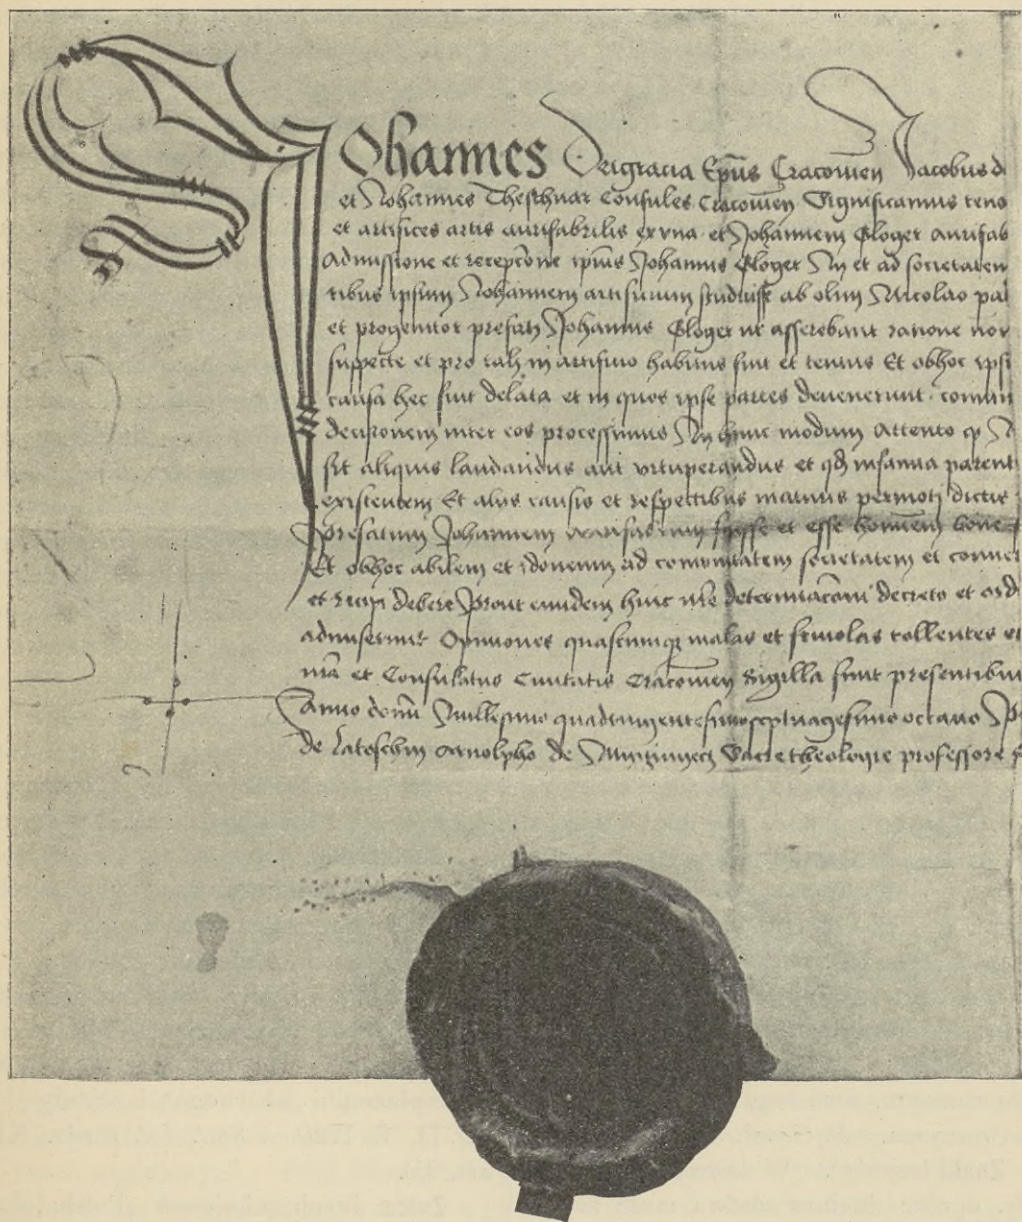 Johannes Dei gracia Ep̄us Cracouień Jacobus d
et Johannes Theschnar Consules Cracouień Significamus teno
et artifices artis aurifabrilis ex vna et Johannem Gloger aurifab
Admissione et recepc̄one ip̄ius Johannis Gloger In et ad societatem
ribus ipsum Johannem artificium studuisse ab olim Nicolao pa
et progenitor prefati Johannis Gloger ut asserebant ratione
suspecte et pro tali in artificio habitus sint et tentus Et ob hoc ipsi
causa hec sint delata et in quos ipse partes deuenerunt
decisionem inter eos processimus In hunc modum Attento
sit aliquis laudandus aut vituperandus et infamia parent
existentem Et aliis causis et respectibus permoti dictis
prefatum Johannem aurifabrum fuisse et esse hominem bone
Et ob hoc abilem et idoneum ad comunitatem societatem et
et recipi debere Prout eiusdem huic decreto et ord
admiserunt Opiniones quascumque malas et friuolas tollentes et
et Consulatus Ciuitatis Cracouień Sigilla sunt presentibus
Anno domī Millesimo quadringentesimo septuagesimo octauo
de Latoschin Arnolpho de Sacre theologie professore